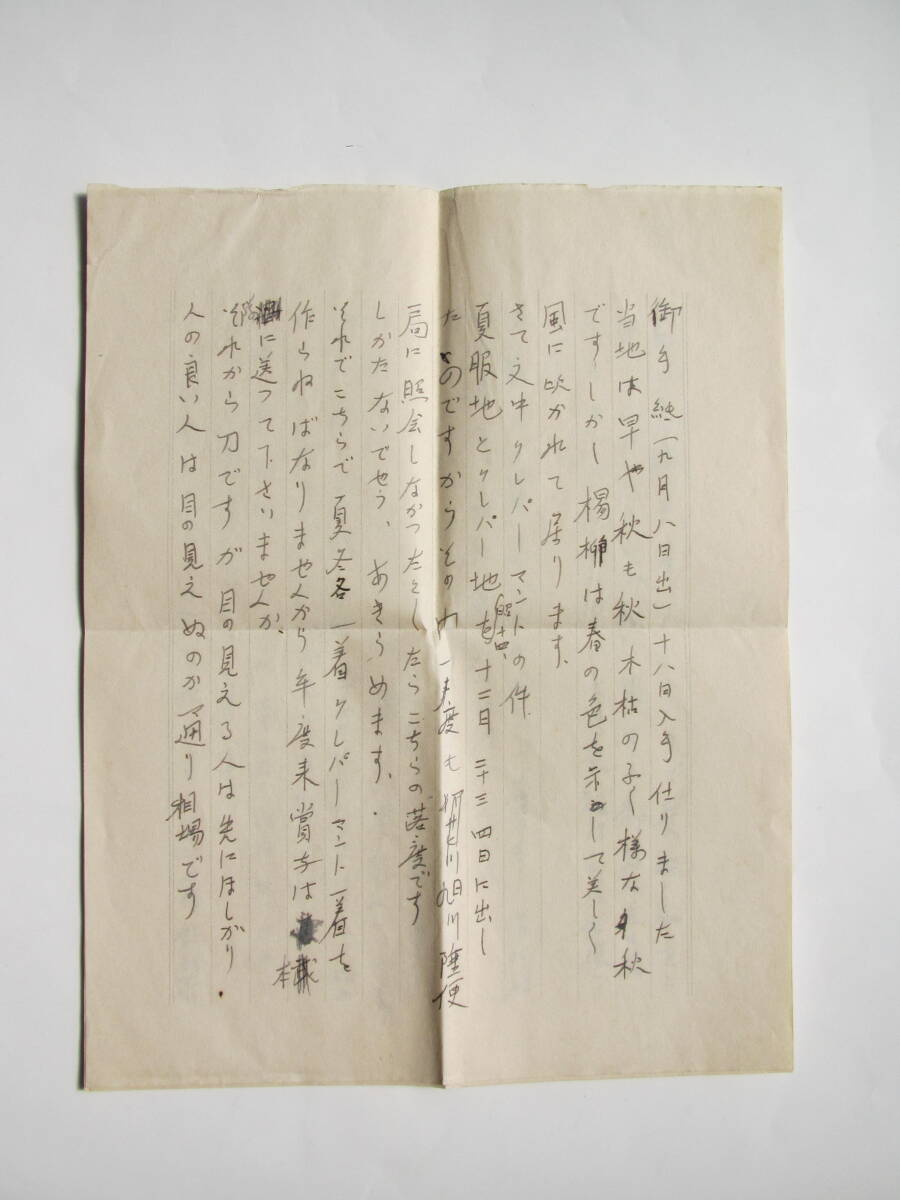 御手紙（九月八日出）十八日入手仕りました
当地は早や秋も秋木枯の子く様な秋
ですしかし楊柳は春の色を示して美しく
風に吹かれて居ります、
さて文中クレパーマントの件
夏服地とクレパー地を十二月二十三四日に出し
たのですからその内一度も旭川陸便
局に照会しなかつたとしたらこちらの落度です
しかたないでせう、あきらめます、
それでこちらで夏冬各一着クレパーマント一着を
作らねばなりませんから年度末賞与は
に送つて下さいませんか、
それから刀ですが目の見える人は先にほしがり
人の良い人は目の見えぬのが通り相場です